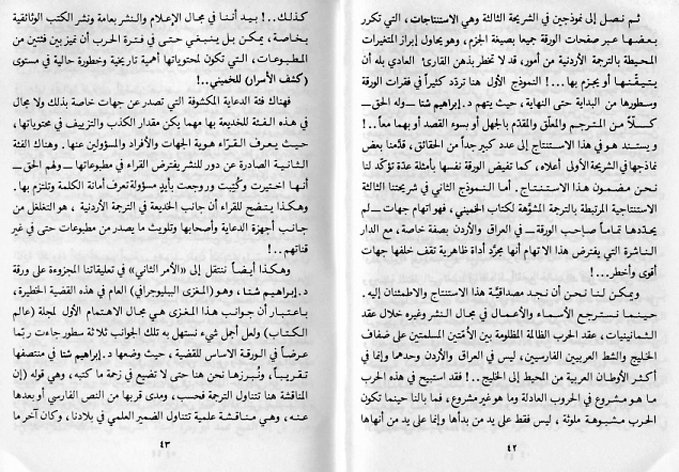 ثم نصل إلى نموذجين في الشريحة الثالثة وهي الاستنتاجات، التي تكرر
بعضها عبر صفحات الورقة جميعا بصيغة الجزم، وهو يحاول إبراز المتغيرات
المحيطة بالترجمة الأردنية من أمور، قد لا تخطر بذهن القارئ العادي بله أن
يتيقّنها أو يجزم بها...! النموذج الأول هنا تردّد كثيراً في فقرات الورقة
وسطورها من البداية حتى النهاية، حيث يتهم د.إبراهيم شتا ــ وله الحق ــ
كلّاً من المترجم والمعلّق والمقدّم بالجهل أو بسوء القصد أو بهما معاً..!
ويستند هو في هذا الاستنتاج إلى عدد كبير جداً من الحقائق، قدّمنا بعض
نماذجها في الشريحة الأولى أعلاه، كما تفيض الورقة نفسها بأمثلة عدّة تؤكد لنا
نحن مضمون هذا الاستنتاج. أما النموذج الثاني في شريحتنا الثالثة
الاستنتاجية المرتبطة بالترجمة المشوّهة لكتاب الخميني، فهو اتهام جهات ــ لم
يحددها تماماً صاحب الورقة ــ في العراق والأردن بصفة خاصة، مع الدار
الناشرة التي يفترض هذا الاتهام أنها مجرّد أداة ظاهرية تقف خلفها جهات
أقوى وأخطر...!
ويمكن لنا نحن أن نجد مصداقيّة هذا الاستنتاج والاطمئنان إليه.
حينما نسترجع الأسماء والأعمال في مجال النشر وغيره خلال عقد
الثمانينيات، عقد الحرب الظالمة المظلومة بين الأمّتين المسلمتين على ضفاف
الخليج والشط العربيين الفارسيين، ليس في العراق والأردن وحدهما وإنما في
أكثر الأوطان العربية من المحيط إلى الخليج..! فقد استبيح في هذه الحرب
ما هو مشروع في الحروب العادلة وما هو غير مشروع، فما بالنا حينما تكون
الحرب مشبوهة ملوثة، ليس فقط على يد من بدأها وإنما على يد من أنهاها
٤٢
كذلك..! بيد أننا في مجال الإعلام والنشر بعامة ونشر الكتب الوثائقية
بخاصة، يمكن بل ينبغي حتى في فترة الحرب أن نميز بين فئتين من
المطبوعات، التي تكون لمحتوياتها أهمية تاريخية وخطورة حالية في مستوى
(كشف الأسرار) للخميني..!
فهناك فئة الدعاية المكشوفة التي تصدر عن جهات خاصة بذلك ولا مجال
في هذه الفئة للخديعة بها مهما يكن مقدار الكذب والتزييف في محتوياتها،
حيث يعرف القرّاء هوية الجهات والأفراد والمسؤولين عنها. وهناك الفئة
الثانية الصادرة عن دور للنشر يفترض القراء في مطبوعاتها ــ ولهم الحق ــ
أنها اختيرت وكُتِبت وروجعت بأيدٍ مسؤولة تعرف أمانة الكلمة وتلتزم بها.
وهكذا يتضح للقراء أن جانب الخديعة في الترجمة الأردنية ، هو التغلغل من
جانب أجهزة الدعاية وأصحابها وتلويث ما يصدر من مطبوعات حتى في غير
قناتهم..!
وهكذا أيضاً ننتقل إلى «الأمر الثاني» في تعليقاتنا المجزوءة على ورقة
د.إبراهيم شتا، وهو(المغزى الببليوجرافي) العام في هذه القضية الخطيرة،
باعتبار أن جوانب هذا المغزى هي مجال الاهتمام الأول لمجلة (عالم
الكتاب) ولعل أجمل شيء نستهل به تلك الجوانب ثلاثة سطور جاءت ربّما
عرضاً في الورقة الاساس للقضية ، حيث وضعها د.إبراهيم شتا في منتصفها
تقريباً، ونُبرزها نحن هنا حتى لا تضيع في زحمة ما كتبه، وهي قوله (إن
المناقشة هنا تتناول الترجمة فحسب، ومدى قربها من النص الفارسي أو بعدها
عنه، وهي مناقشة علمية تتناول الضمير العلمي في بلادنا، وكان آخر ما
٤٣